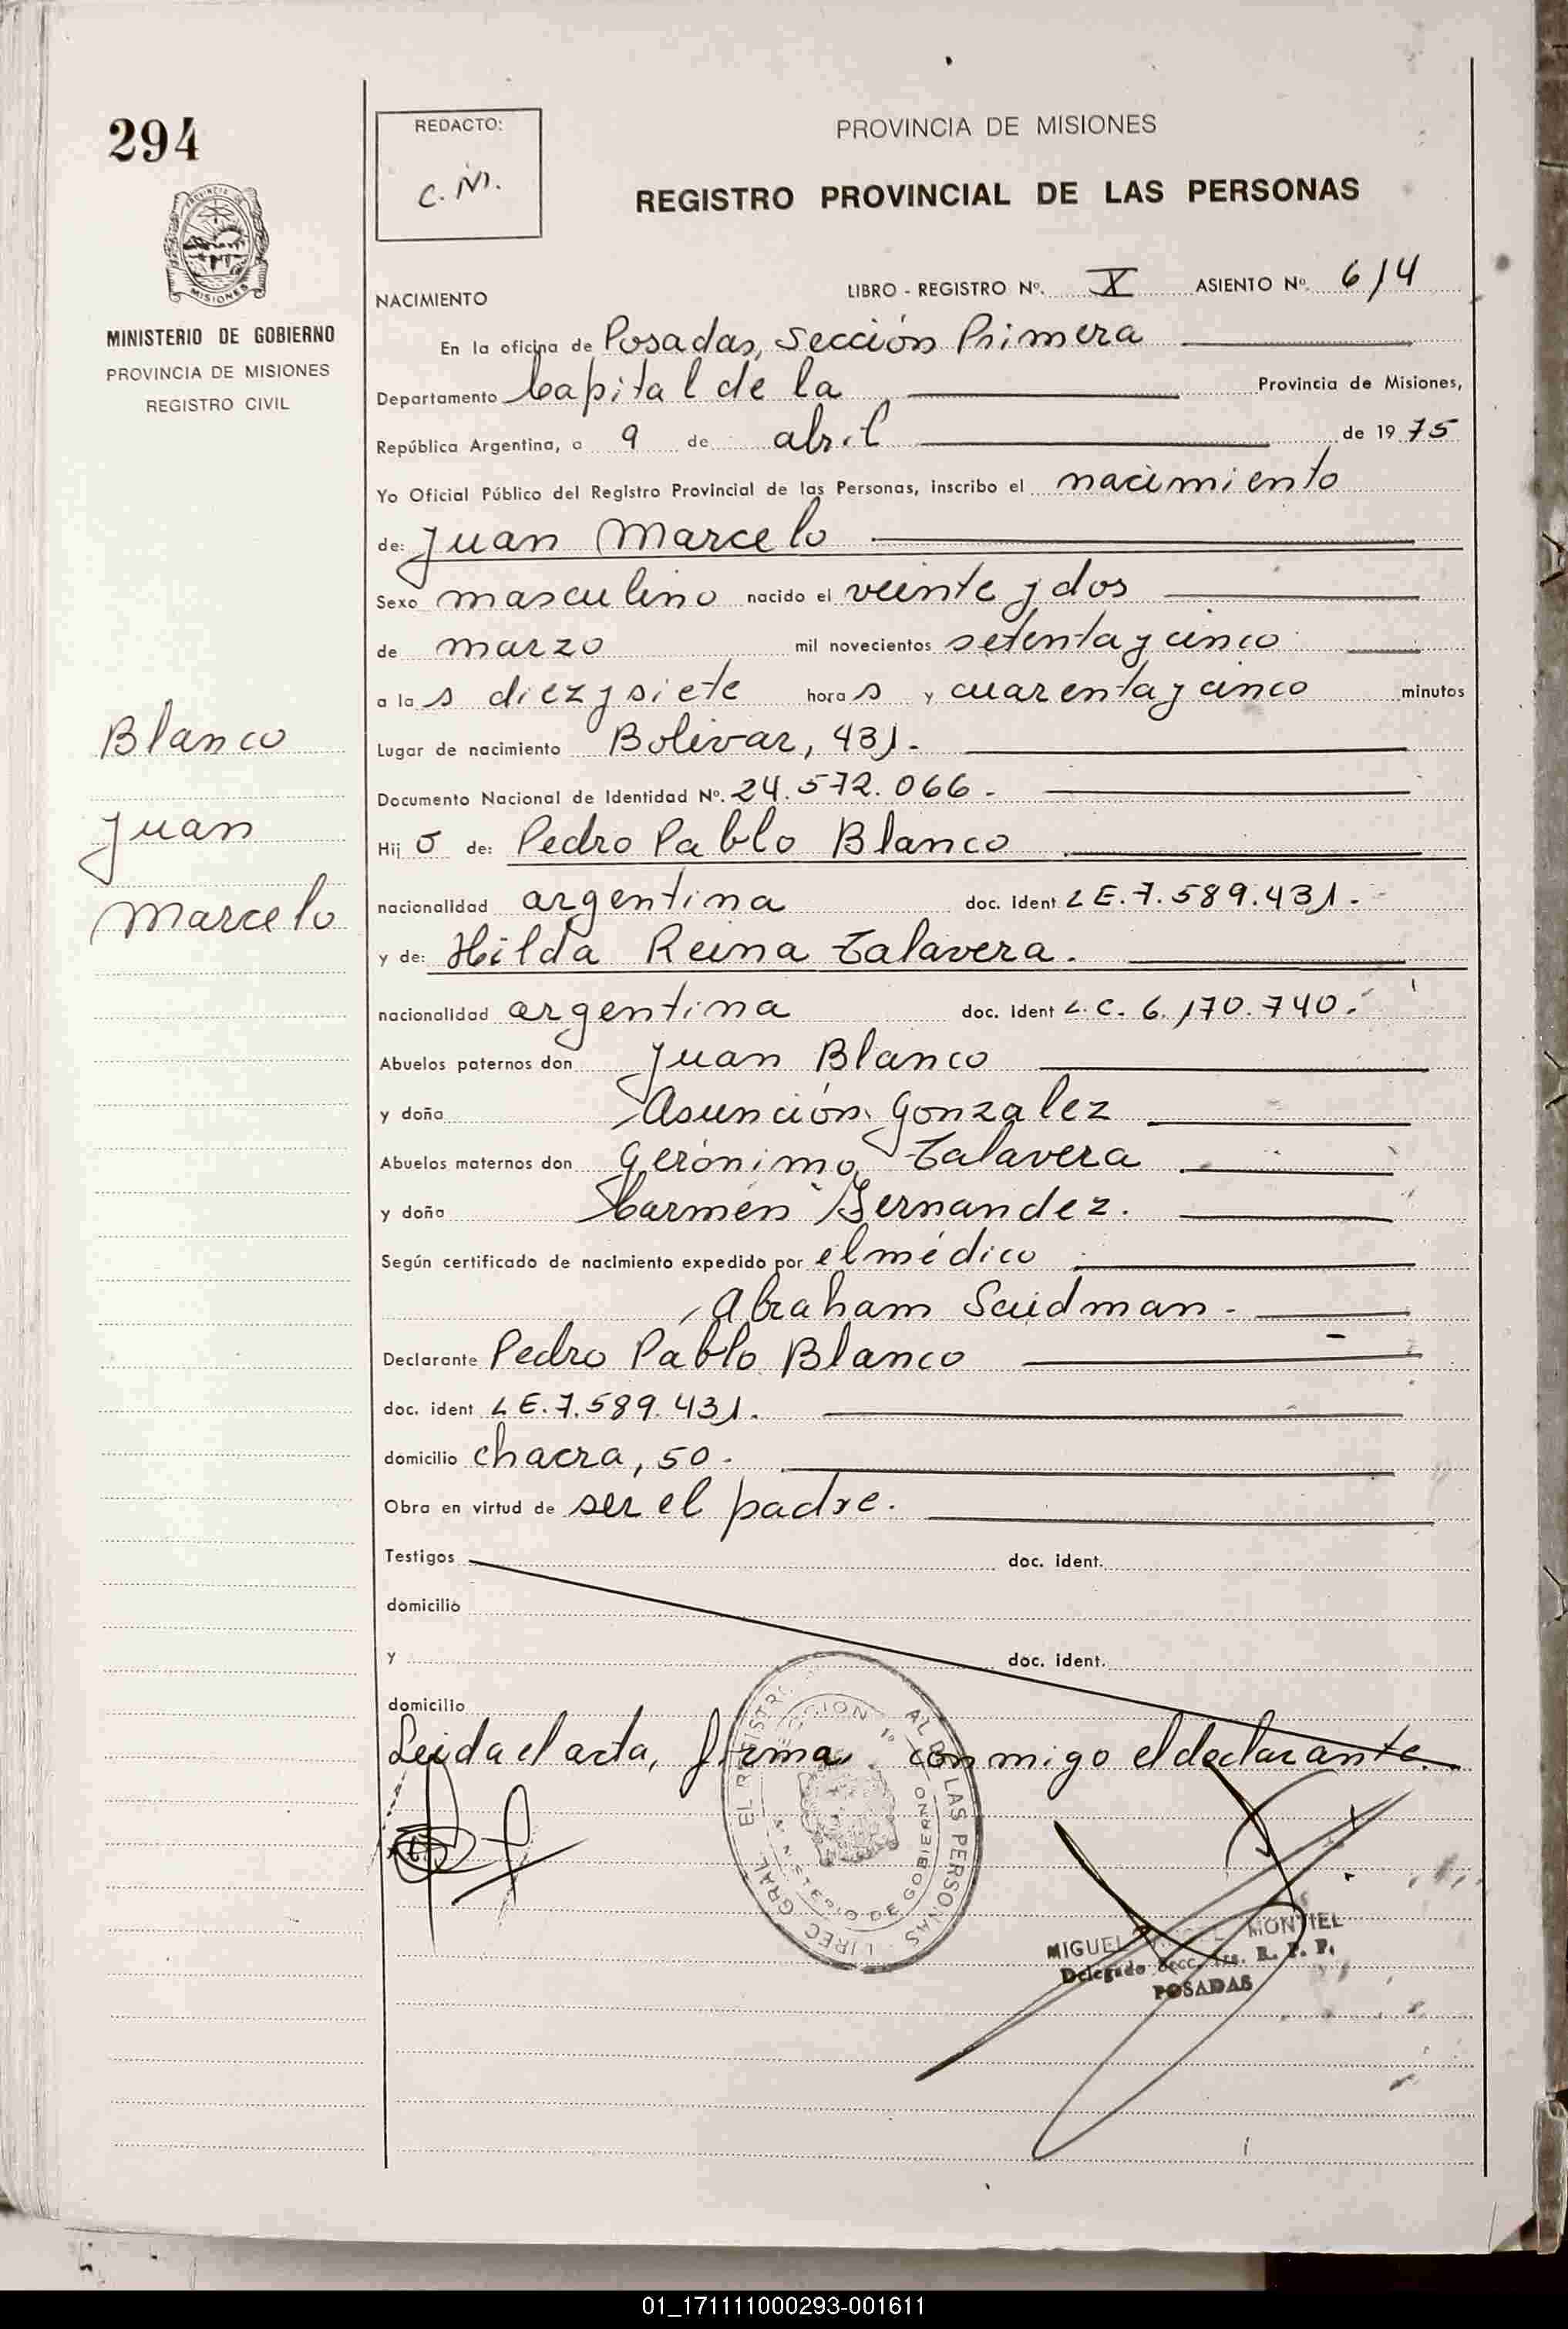 294
REDACTO:
C. M.
PROVINCIA DE MISIONES
REGISTRO PROVINCIAL DE LAS PERSONAS
MISIONES
MINISTERIO DE GOBIERNO
PROVINCIA DE MISIONES
REGISTRO CIVIL
NACIMIENTO
LIBRO - REGISTRO Nº. X ASIENTO Nº. 614
En la oficina de Posadas, Sección Primera
Departamento Capital de la Provincia de Misiones,
República Argentina, a 9 de abril de 1975
Yo Oficial Público del Registro Provincial de las Personas, inscribo el nacimiento
de: Juan Marcelo
Sexo masculino nacido el veinte y dos
de marzo mil novecientos setenta y cinco
a las diez y siete horas y cuarenta y cinco minutos
Lugar de nacimiento Bolivar, 431.
Documento Nacional de Identidad Nº. 24.572.066.
Hijo de: Pedro Pablo Blanco
nacionalidad argentina doc. ident L E. 7.589.431.
y de: Hilda Reina Talavera.
nacionalidad argentina doc. ident L. C. 6.170.740.
Abuelos paternos don Juan Blanco
y doña Asunción Gonzalez
Abuelos maternos don Gerónimo Talavera
y doña Carmen Fernandez.
Según certificado de nacimiento expedido por el médico
Abraham Saidman.
Declarante Pedro Pablo Blanco
doc. ident L E. 7.589.431.
domicilio chacra, 50.
Obra en virtud de ser el padre.
Testigos doc. ident.
domicilio
y doc. ident.
domicilio
Leida el acta, firma conmigo el declarante.
Blanco
Juan
Marcelo
MIGUEL ANGEL MONTIEL
Delegado Secc. 1ra. R. P. P.
POSADAS
01_171111000293-001611